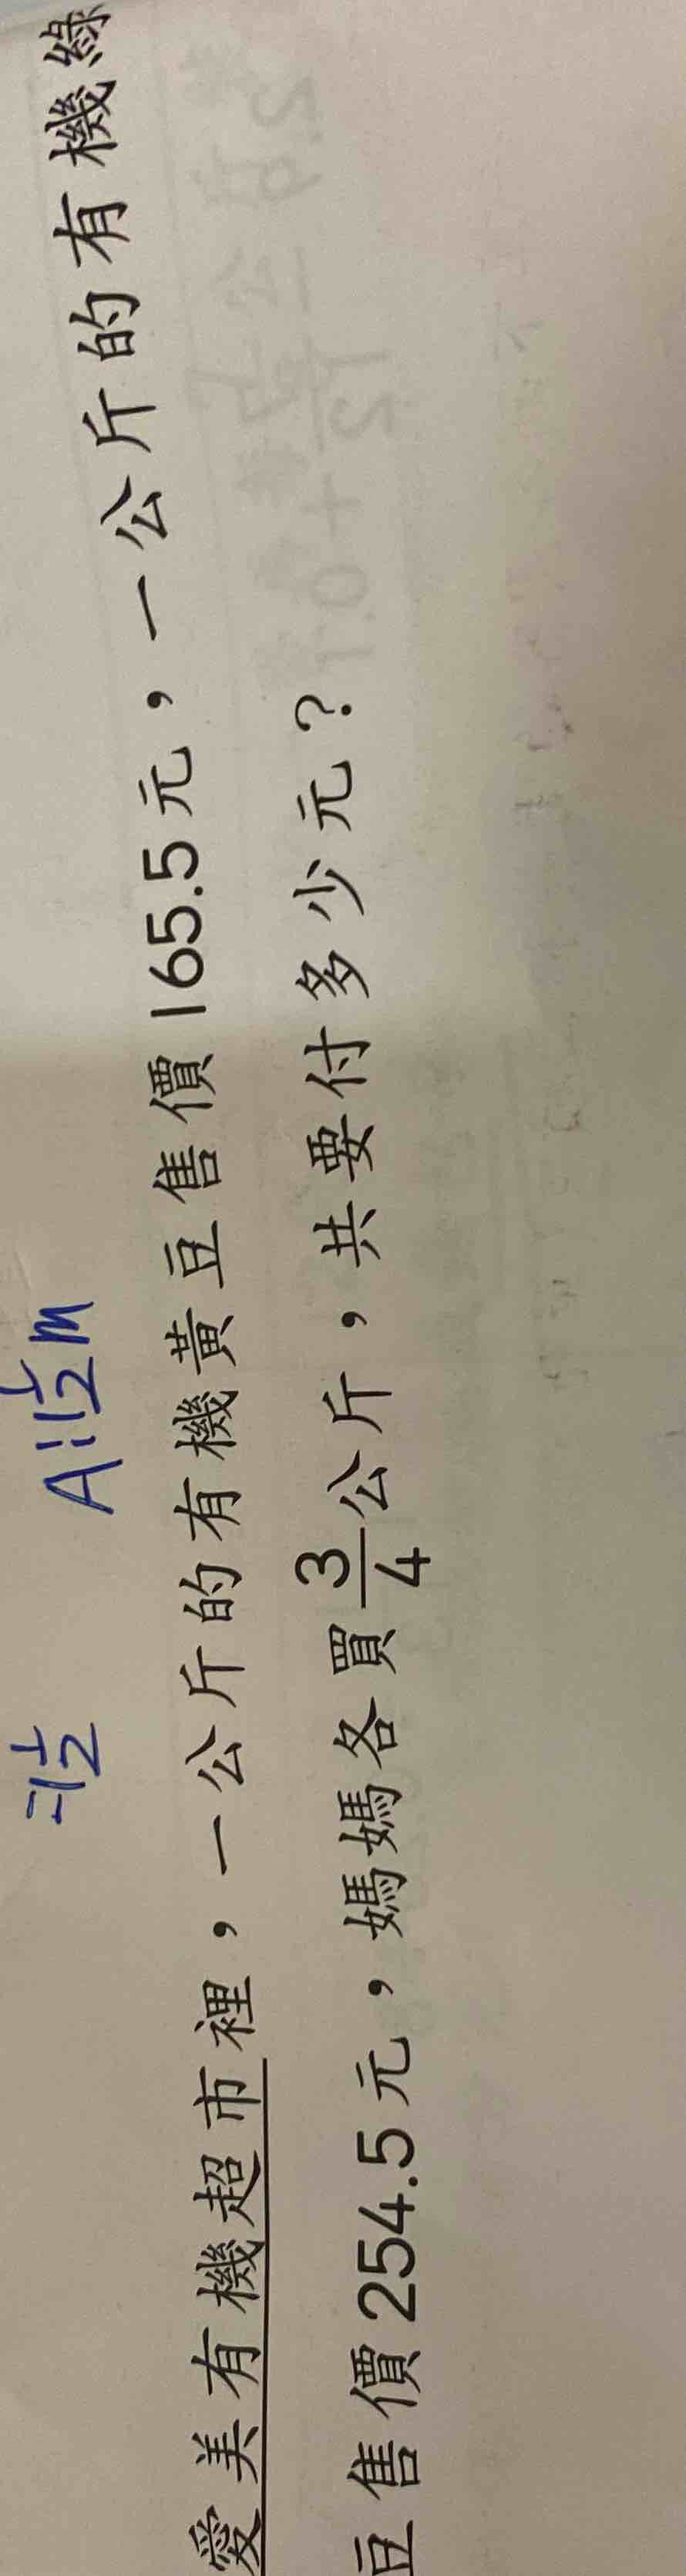 =1 1/2 A:1 1/2 m
愛美有機超市裡，一公斤的有機黃豆售價165.5元，一公斤的有機綠
豆售價254.5元，媽媽各買3/4公斤，共要付多少元？